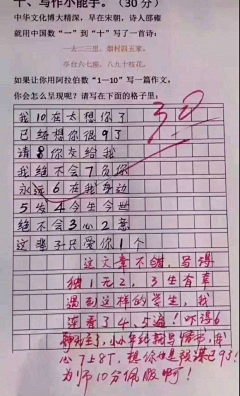 十、写作小能手。(30分)
中华文化博大精深，早在宋朝，诗人邵雍
就用中国数“一”到“十”写了一首诗：
一去二三里，烟村四五家，
亭台六七座，八九十枝花。
如果让你用阿拉伯数“1—10”写一篇作文，
你会怎么呈现呢？请写在下面的格子里：
30
我10在太想你了
已经想你很9了
请8你嫁给我
我绝不会7负你
永远6在我身边
5发4今生今世
绝不会3心2意
这辈子只爱你1个
这文章不错，写得
独1无2，3生有幸
遇到这样的学生，我
连看了4、5遍！吓得6
神无主了，小小年纪就写情书，我
心7上8下，想你也是预谋已9了！
为师10分佩服啊！